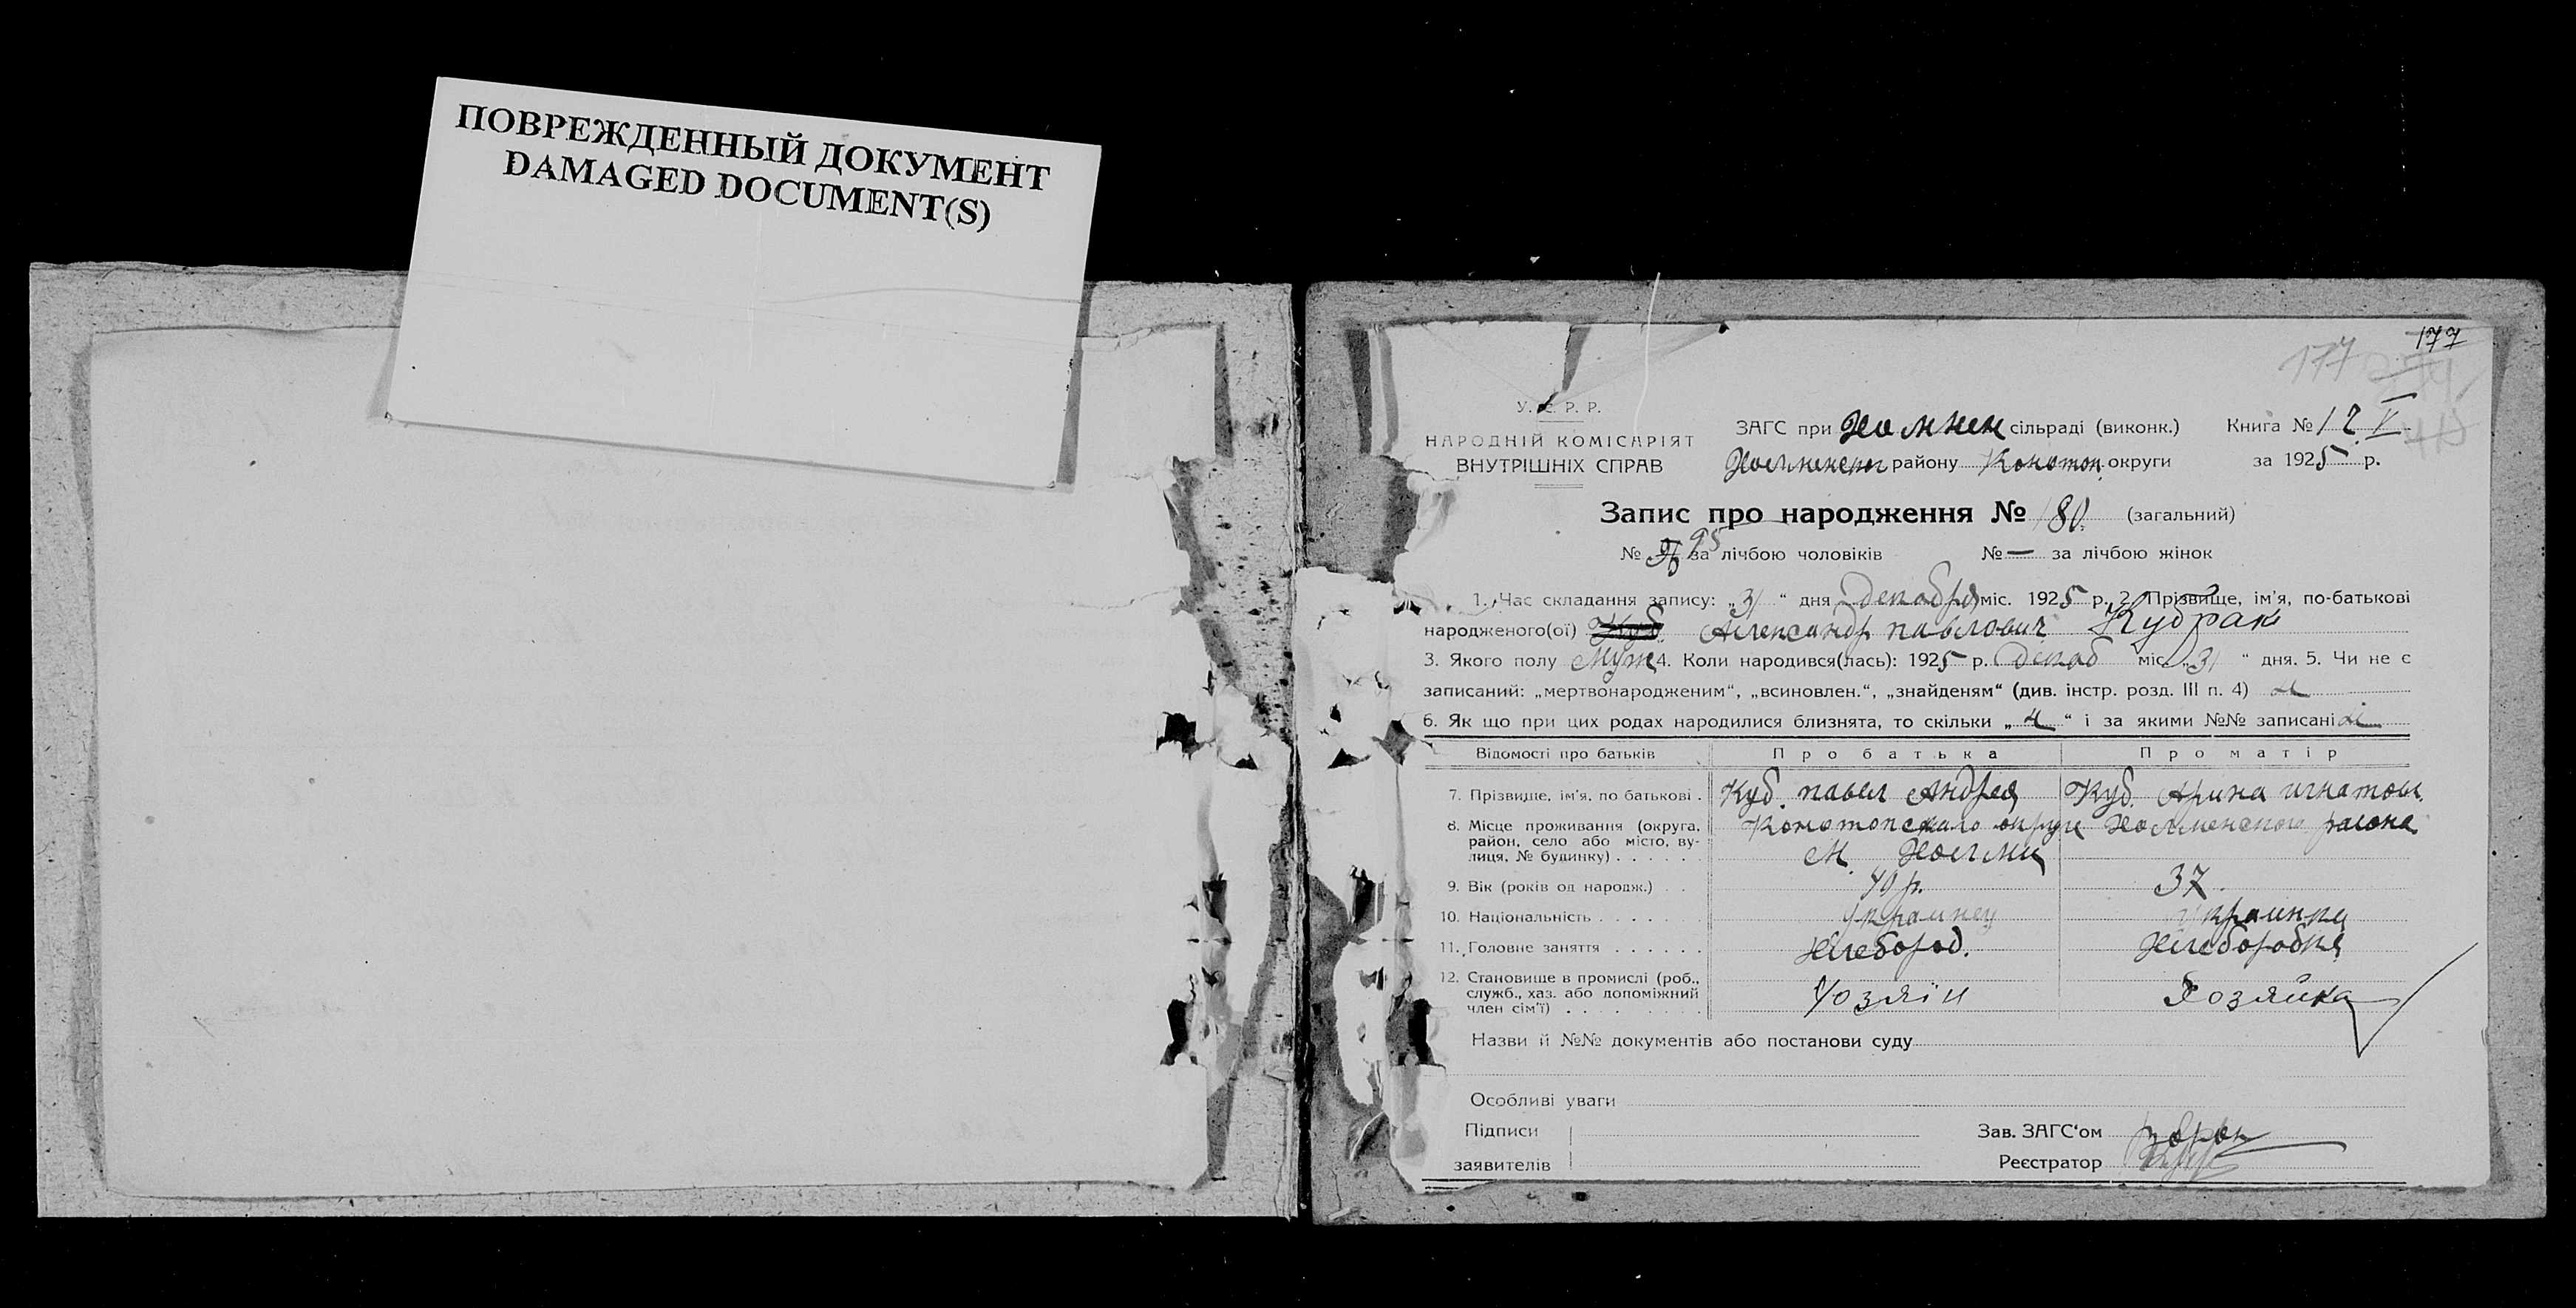 ПОВРЕЖДЕННЫЙ ДОКУМЕНТ
DAMAGED DOCUMENT(S)
177
177
У. С. Р. Р.
НАРОДНІЙ КОМІСАРІЯТ
ВНУТРІШНІХ СПРАВ
ЗАГС при Холмен сільраді (виконк.) Книга № 12 V
Холменског району Конотоп. округи за 1925 р.
Запис про народження № 180. (загальний)
№ 95 за лічбою чоловіків № — за лічбою жінок
1. Час складання запису: „31“ дня Декабря міс. 1925 р. 2. Прізвище, ім'я, по-батькові
народженого(ої) Куб. Александр павлович Кубрак
3. Якого полу Муж 4. Коли народився(лась): 1925 р. Декаб міс. „31“ дня. 5. Чи не є
записаний: „мертвонародженим“, „всиновлен.“, „знайденям“ (див. інстр. розд. III п. 4)
6. Як що при цих родах народилися близнята, то скільки „ “ і за якими №№ записані
Відомості про батьків Про батька Про матір
7. Прізвище, ім'я, по батькові . Куб. павел Андрея Куб. Арина игнатовн.
8. Місце проживання (округа, район, село або місто, ву- лиця, № будинку) . . . . . . Конотопского округи Холменского района
м. Холми
9. Вік (років од народж.) . . 40 р. 37.
10. Національність . . . . . . . украинец украинка
11. Головне заняття . . . . . . Хлебороб. Хлеборобка
12. Становище в промислі (роб., служб., хаз. або допоміжний член сім'ї) . . . . . . . . Хозяін Хозяйка
Назви й №№ документів або постанови суду
Особливі уваги
Підписи
заявителів
Зав. ЗАГС'ом
Реєстратор